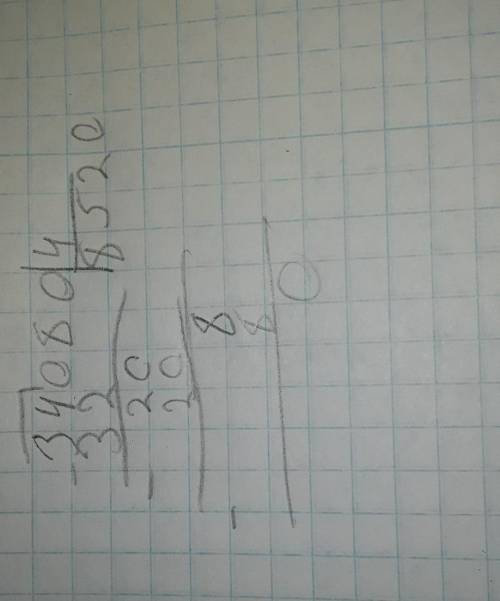 34080 4
- 32 8520
- 20
20
- 8
8
0